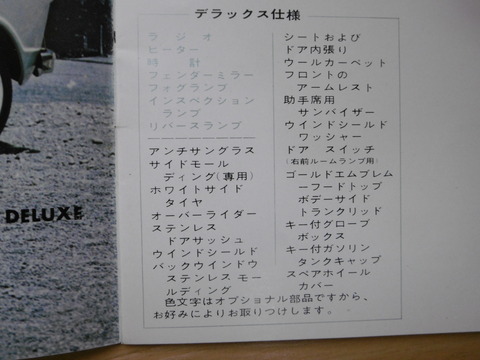 デラックス仕様
ラジオ
ヒーター
時計
フェンダーミラー
フォグランプ
インスペクション
ランプ
リバースランプ
アンチサングラス
サイドモール
ディング(専用)
ホワイトサイド
タイヤ
オーバーライダー
ステンレス
ドアサッシュ
ウインドシールド
バックウインドウ
ステンレス モー
ルディング
シートおよび
ドア内張り
ウールカーペット
フロントの
アームレスト
助手席用
サンバイザー
ウインドシールド
ワッシャー
ドア スイッチ
(右前ルームランプ用)
ゴールドエムブレム
ーフードトップ
ボデーサイド
トランクリッド
キー付グローブ
ボックス
キー付ガソリン
タンクキャップ
スペアホイール
カバー
色文字はオプショナル部品ですから、
お好みによりお取りつけします。
DELUXE